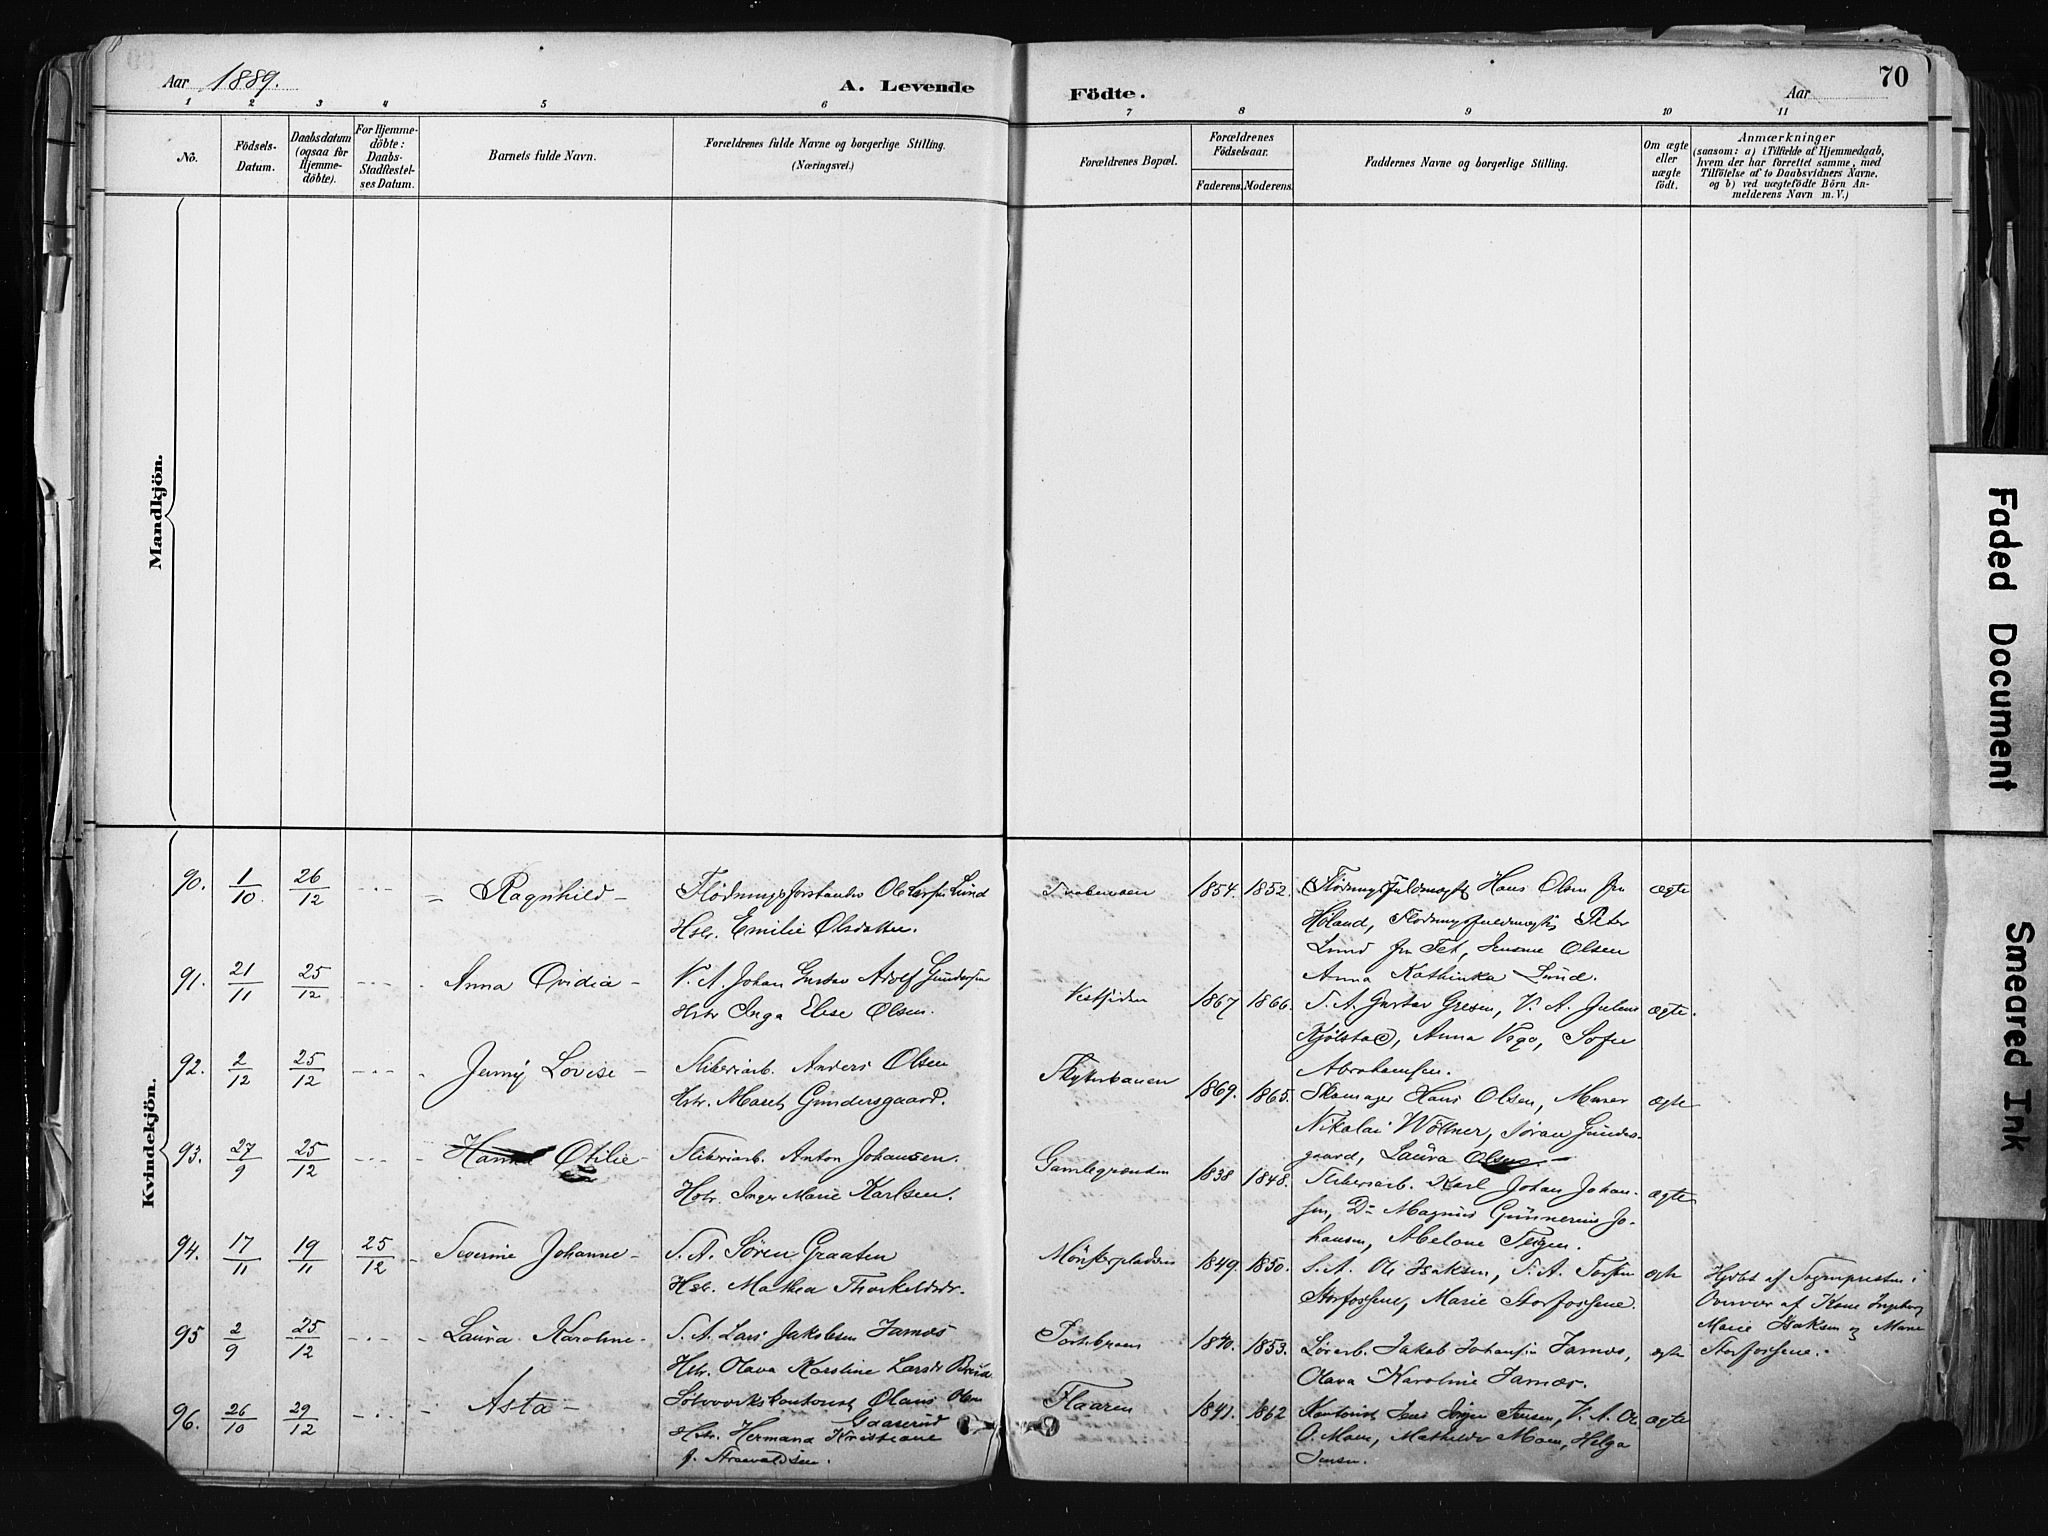 Aar 1889.
A. Levende
Födte.
Aar
70
1 2 3 4 5 6 7 8 9 10 11
No.
Födsels-
Datum.
Daabsdatum
(ogsaa for
Hjemme-
döbte).
For Hjemme-
döbte:
Daabs-
Stadfæstel-
ses Datum.
Barnets fulde Navn.
Forældrenes fulde Navne og borgerlige Stilling.
(Næringsvei.)
Forældrenes Bopæl.
Forældrenes
Födselsaar.
Faderens. Moderens.
Faddernes Navne og borgerlige Stilling.
Om ægte
eller
uægte
födt.
Anmærkninger
(saasom: a) i Tilfælde af Hjemmedaab,
hvem der har forrettet samme, med
Tilföielse af to Daabsvidners Navne,
og b) ved uægtefödte Börn An-
melderens Navn m. V.)
Mandkjön.
Kvindekjön.
90. 1/10. 26/12 Ragnhild
Ole Larsen Lund
Hstr. Emilie Olsdatter.
1854. 1852.
Hans Olsen fra
Høland, Peter
Lund fra Fet, Olsen
Anna Kathinka Lund.
ægte
91. 21/11 25/12 Anna Ovidia
V. A. Johan Gustav Adolf Gundersen
Hstr Inga Elise Olsen.
Vestsiden
1867 1866.
S. A. Gustav Gresen, V. A. Julius
Kjølstad, Anna Vego, Sofie
Abrahamsen.
ægte.
92. 2/12 25/12 Jenny Lovise
Sliberiarb. Anders Olsen
Hstr. Maret Gundersgaard.
Skytterbanen
1869. 1865.
Skomager Hans Olsen, Murer
Nikolai Wöllner, Jøran Gunders-
gaard, Laura Olsen.
ægte
93. 27/9 25/12 Hanna Otilie
Sliberiarb. Anton Johansen.
Hstr. Inger Marie Karlsen.
Gamlegrænden
1838 1848.
Sliberiarb. Karl Johan Johan-
sen, Do Magnus Gunnerius Jo-
hansen,
ægte
94. 17/11 19/11 25/12 Severine Johanne
S. A. Søren Graaten
Hstr. Mathea Thorkeldsdr.
Mönsterpladsen
1849. 1850.
S. A. Ole Isaksen, S. A. Torsten
Storfossene, Marie Storfossene.
ægte
Hjdbt af Sognepresten i
Overvær af Kone Ingeborg
Marie Isaksen og Marie
Storfossene.
95 2/9 25/12 Laura Karoline
S. A. Lars Jakobsen Jarnæs
Hstr. Olava Karoline Larsdr
1840. 1853.
Jakob Johansen Jarnæs,
Olava Karoline Jarnæs.
ægte
96. 26/10 29/12 Asta
Sølvverkskontorist Olaus Olsen
Gaaserud
Hstr. Hermana Kristiane
f.
Flaaren
1841. 1862
Kontorist Jens Jensen, V. A. O.
O. Moen, Mathilde Moen, Helga
Jensen
ægte
Faded Document
Smeared Ink